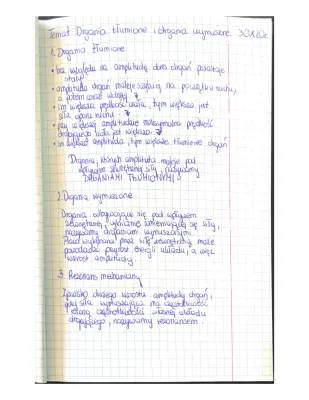 Temat: Drgania tłumione i drgania wymuszone. 30.X.20r.
1. Drgania tłumione
• bez względu na amplitudę okres drgań pozostaje stały
• amplituda drgań maleje szybciej na początku ruchu,
a potem coraz wolniej
• im większa prędkość ciała, tym większa jest
siła oporu ruchu
• przy większej amplitudzie maksymalna prędkość
drgającego ciała jest większa
• im większa amplituda, tym większe tłumienie drgań
Drgania, których amplituda maleje pod
wpływem zewnętrznej siły, nazywamy
DRGANIAMI TŁUMIONYMI
2. Drgania wymuszone
Drgania odbywające się pod wpływem
zewnętrznej, cyklicznie zmieniającej się siły,
nazywamy drganiami wymuszonymi.
Praca wykonana przez siłę zewnętrzną może
powodować przyrost energii układu, a więc
wzrost amplitudy.
3. Rezonans mechaniczny
Zjawisko dużego wzrostu amplitudy drgań,
gdy siła wymuszająca ma częstotliwość
równą częstotliwości własnej układu
drgającego, nazywamy rezonansem.